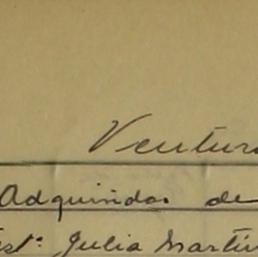 Ventura
Adquiridas de
Est.ª Julia Martín